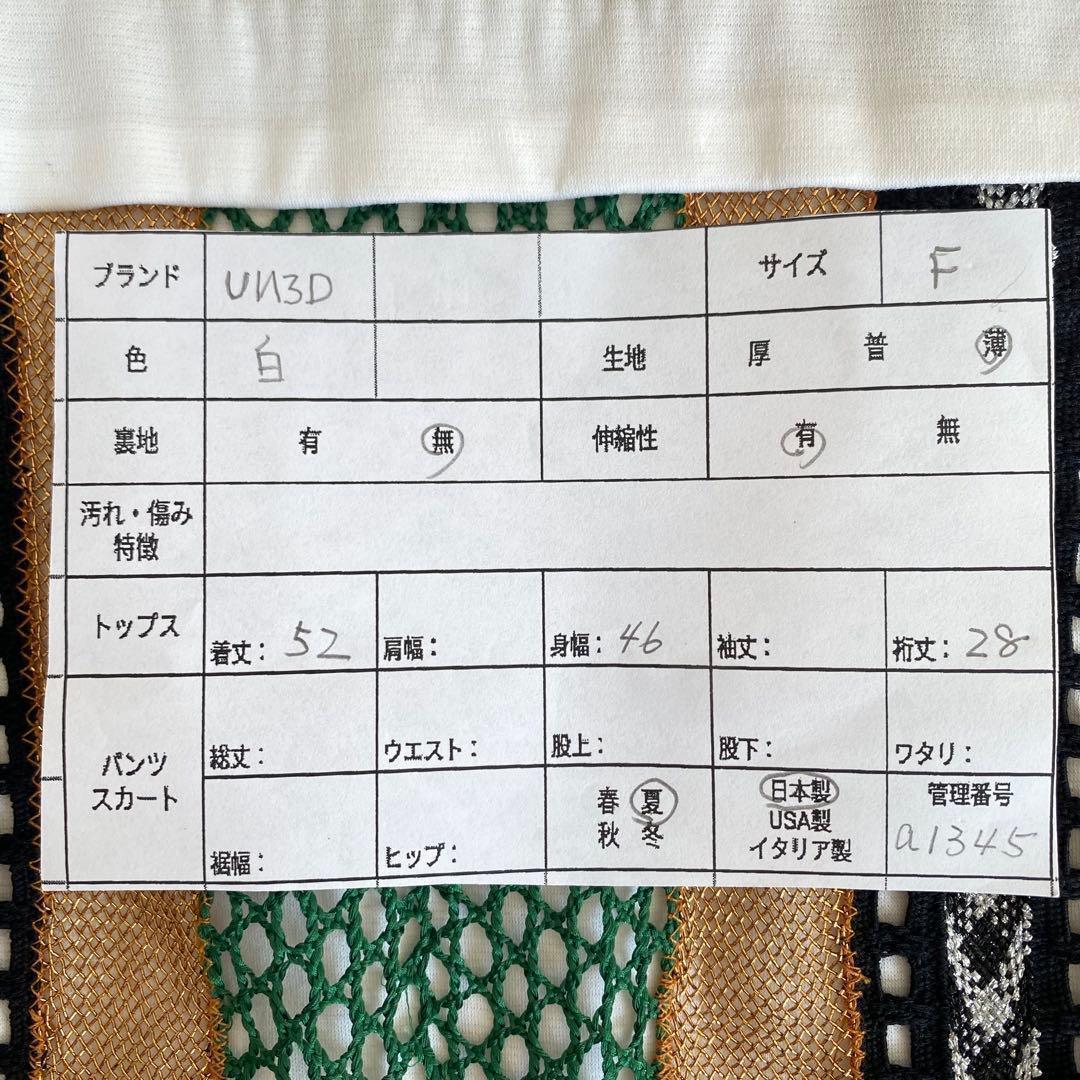 ブランド UN3D サイズ F
色 白 生地 厚 普 薄
裏地 有 無 伸縮性 有 無
汚れ・傷み
特徴
トップス 着丈：52 肩幅： 身幅：46 袖丈： 裄丈：28
パンツ
スカート
総丈： ウエスト： 股上： 股下： ワタリ：
裾幅： ヒップ：
春 夏
秋 冬
日本製
USA製
イタリア製
管理番号
a1345